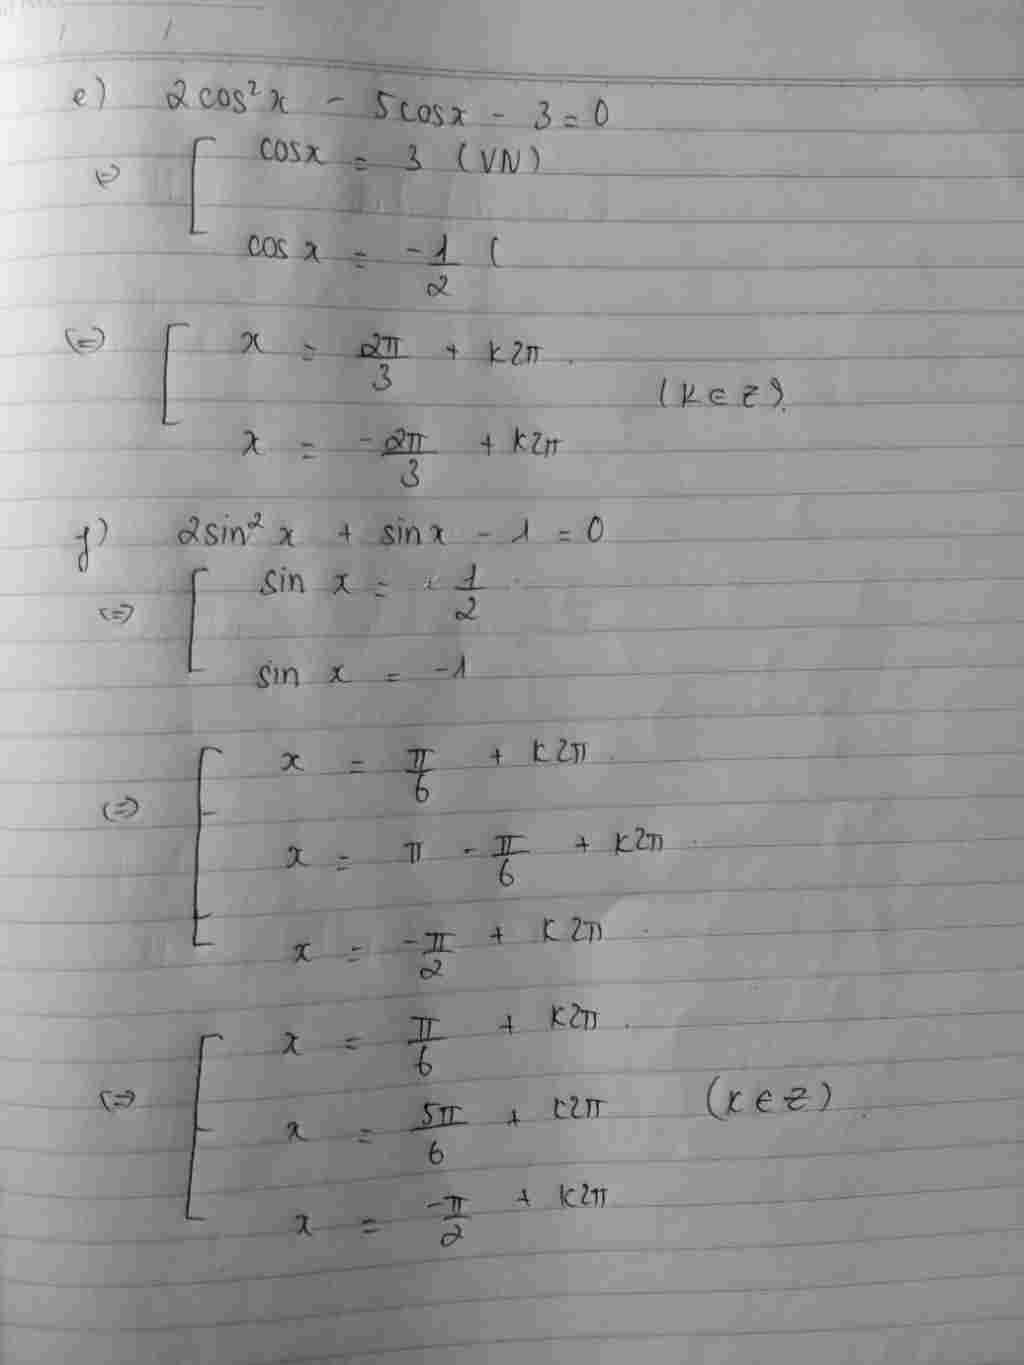 e) 2cos²x - 5cosx - 3 = 0
⇔ [ cosx = 3 (VN)
cos x = -1/2 (
⇔ [ x = 2π/3 + k2π.
(k ∈ Z).
x = -2π/3 + k2π
f) 2sin²x + sinx - 1 = 0
⇔ [ sin x = 1/2
sin x = -1
⇔ [ x = π/6 + k2π.
x = π - π/6 + k2π.
x = -π/2 + k2π.
⇔ [ x = π/6 + k2π.
x = 5π/6 + k2π (k ∈ Z).
x = -π/2 + k2π